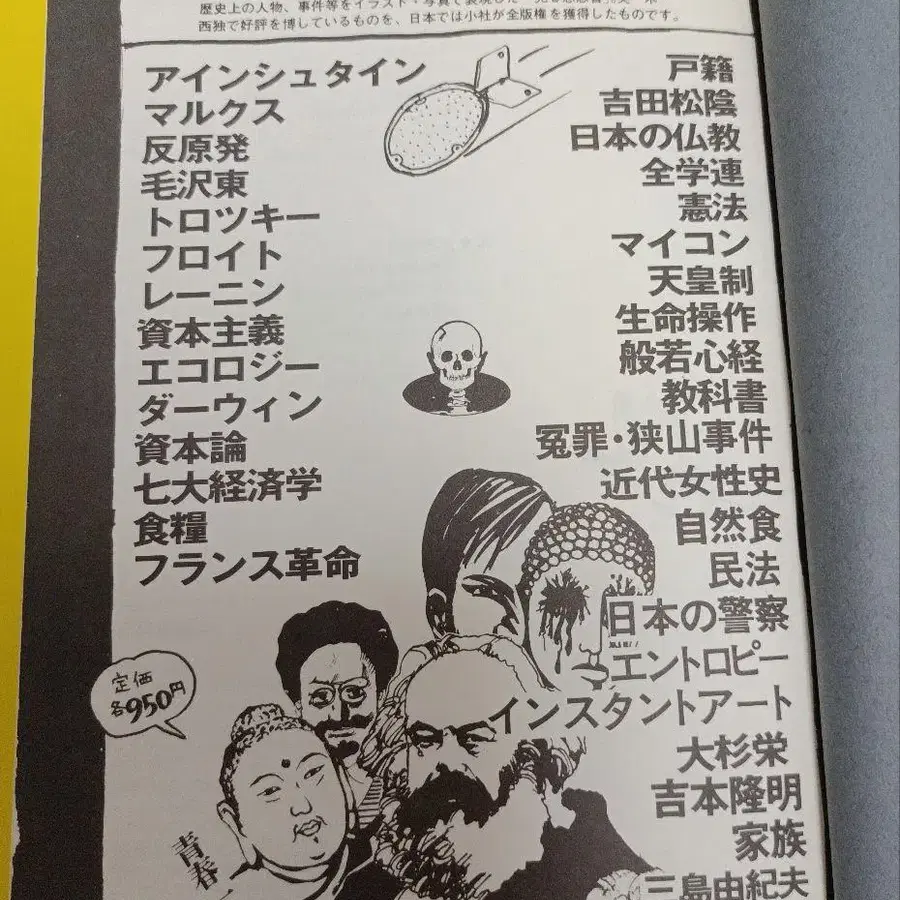 歴史上の人物、事件等をイラスト・写真で表現した
西独で好評を博しているものを、日本では小社が全版権を獲得したものです。
アインシュタイン
マルクス
反原発
毛沢東
トロツキー
フロイト
レーニン
資本主義
エコロジー
ダーウィン
資本論
七大経済学
食糧
フランス革命
戸籍
吉田松陰
日本の仏教
全学連
憲法
マイコン
天皇制
生命操作
般若心経
教科書
冤罪・狭山事件
近代女性史
自然食
民法
日本の警察
エントロピー
インスタントアート
大杉栄
吉本隆明
家族
三島由紀夫
定価
各950円
青春